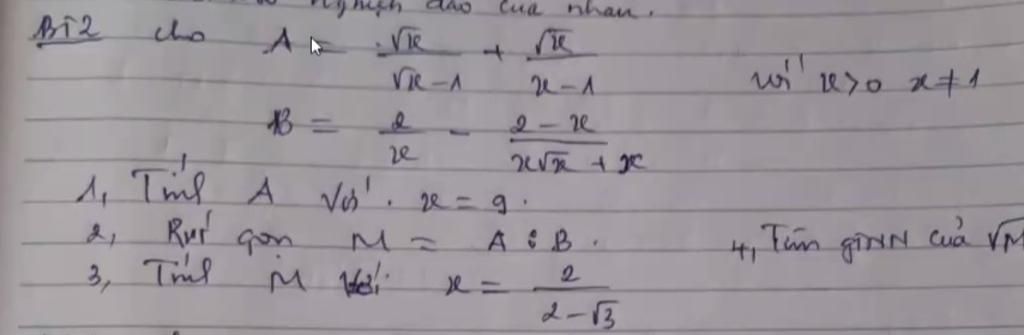 nghiệm đảo của nhau.
BT2 cho A = √x/(√x - 1) + √x/(x - 1) với x>0 x≠1
B = 2/x - (2 - x)/(x√x + x)
1, Tính A với x = 9.
2, Rút gọn M = A : B.
3, Tính M với x = 2/(2 - √3)
4, Tìm gtNN của √M